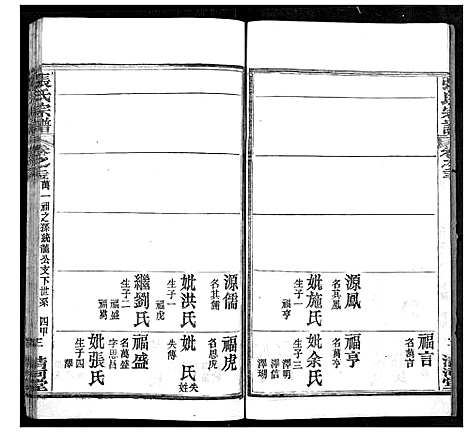 源鳳
名其鳳
妣施氏
生子一
福亨
福言
名萬吉
福亨
名萬亨
妣余氏
生子三
澤明
澤信
澤瑚
張氏宗譜
萬一福之孫統龍公文下世系
清河堂
源儒
名其儒
妣洪氏
生子一
福虎
繼劉氏
生子二
福盛
福萬
福虎
名恩虎
妣 氏
失姓
失傳
福盛
名萬盛
字思昌
妣張氏
生子四
清河堂